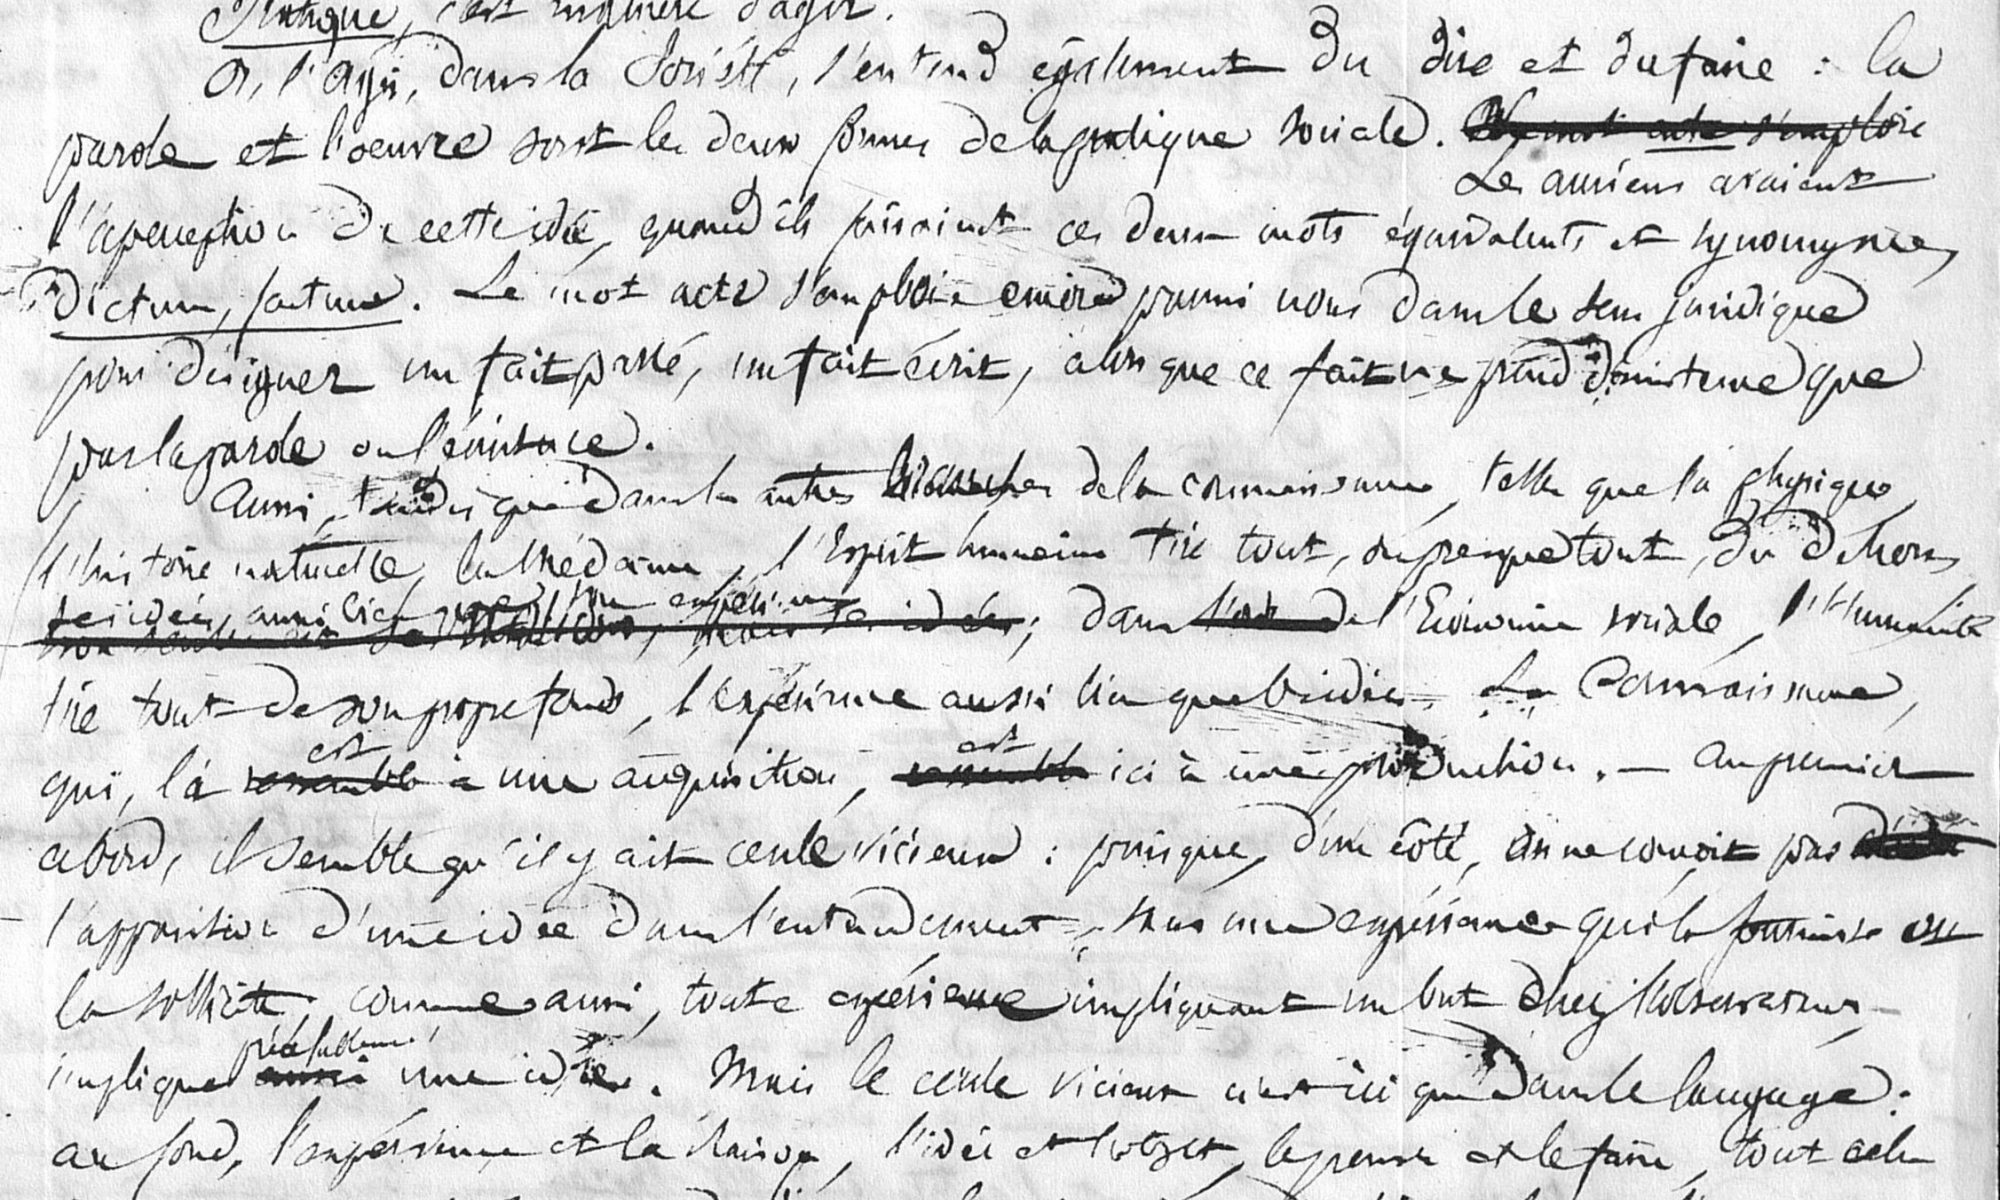 Pratique, c'est manière d'agir.
Or, l'agir, dans la Société, s'entend également du dire et du faire : la
parole et l'oeuvre sont les deux formes de la pratique sociale. Le mot acte s'emploie
Les anciens avaient
l'aperception de cette idée, quand ils faisaient ces deux mots équivalents et synonymes,
dictum, factum. Le mot acte s'emploie encore parmi nous dans le sens juridique
pour désigner un fait passé, un fait écrit, alors que ce fait ne prend d'existence que
par la parole ou l'écriture.
Aussi, tandis que dans les autres branches de la connaissance, telles que la physique,
l'histoire naturelle, la médecine, l'Esprit humain tire tout, ou presque tout, du dehors,
ses idées, aussi bien que son expérience
ses idées ; dans l'ord de l'Economie sociale, l'Humanité
tire tout de son propre fonds, l'expérience aussi bien que les idées. La Connaissance,
est est
qui, là ressemble à une acquisition, ressemble ici à une production. — Au premier
abord, il semble qu'il y ait cercle vicieux : puisque, d'un côté, on ne conçoit pas
l'apparition d'une idée dans l'entendement, sans une expérience qui la fournisse ou
la sollicite, comme aussi, toute expérience impliquant un but chez l'observateur,
préalablement
implique aussi une idée. Mais le cercle vicieux n'est ici que dans le langage :
au fond, l'expérience et la Raison, l'idée et l'objet, le penser et le faire, tout cela